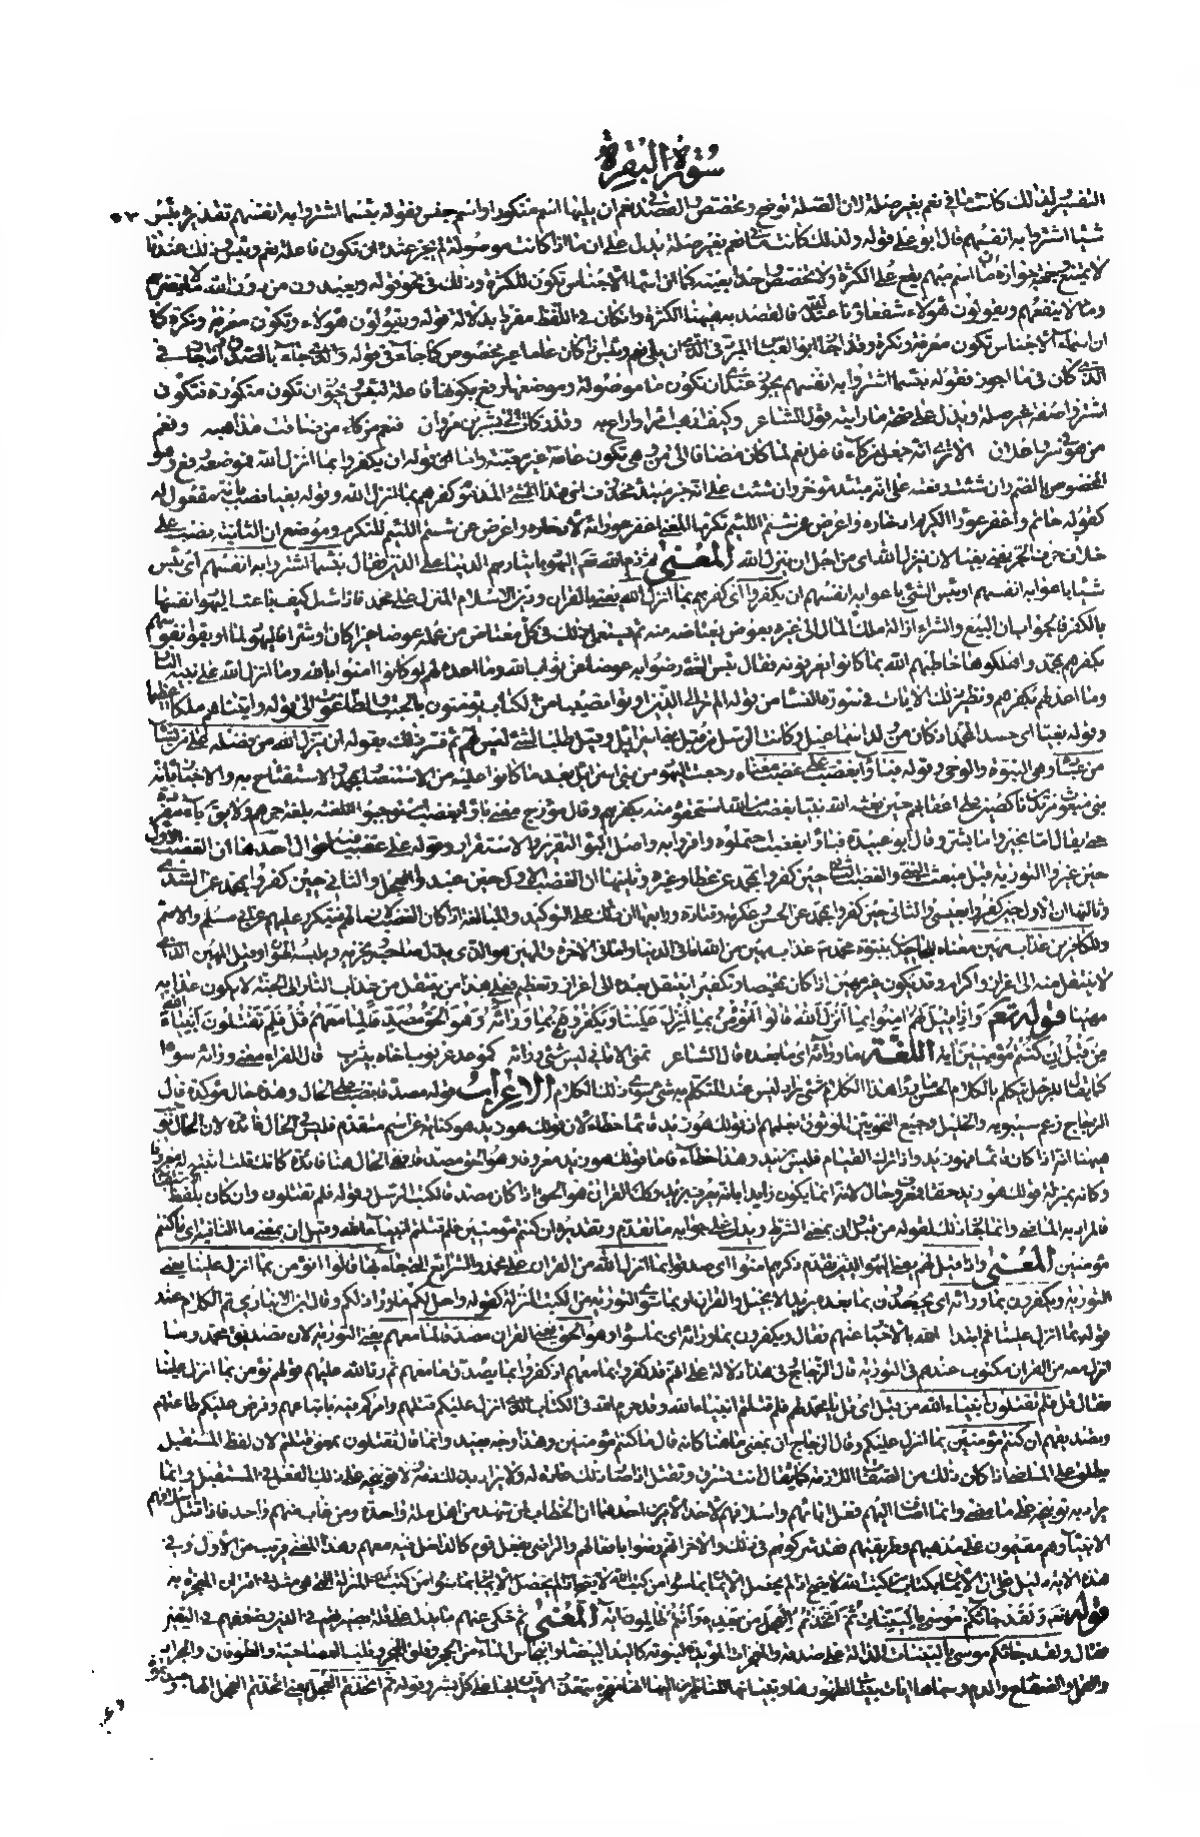 سورة البقرة
٥٣
التفسير لذلك كانت ما في نعم بغير صلة لأن الصلة توضح وتخصص والقصد في نعم ان يليها اسم منكور او اسم جنس فقوله بئسما اشتروا به انفسهم تقديره بئس
شيئا اشتروا به انفسهم قال ابو علي قوله ولذلك كانت ما في نعم بغير صلة يدل على ان ما اذا كانت موصولة لم يجز عنده ان تكون فاعلة نعم وبئس وذلك عندنا
لا يمتنع وجهة جوازه ان ما اسم مبهم يقع على الكثرة ولا تخصص واحدا بعينه كما ان اسماء الاجناس تكون للكثرة وذلك في نحو قوله ويعبدون من دون الله ما لا يضرهم
وما لا ينفعهم ويقولون هؤلاء شفعاؤنا عند الله فالقصد به هيهنا الكثرة وان كان في اللفظ مفردا بدلالة قوله ويقولون هؤلاء وتكون معرفة ونكرة كما
ان اسماء الاجناس تكون معرفة ونكرة وقد اجاز ابو العباس المبرد في الذي ان يلي نعم وبئس اذا كان عاما غير مخصوص كما جاء في قوله والذي جاء بالصدق
الذي كان في ما اجوز فقوله بئسما اشتروا به انفسهم يجوز عندي ان تكون ما موصولة وموضعها رفع بكونها فاعلة لبئس يجوز ان تكون منكورة فتكون
اشتروا صفة غير صلة ويدل على صحة ما رايته قول الشاعر وكيف ارهب امرا او اراع به وقد زكأت الى بشر بن مروان فنعم مزكاء من ضاقت مذاهبه ونعم
من هو في سر واعلان الا ترى انه جعل مزكاء فاعل نعم لما كان مضافا الى من وهي تكون عامة غير معينة واما قوله ان يكفروا بما انزل الله فموضعه رفع وهو
المخصوص بالذم وان شئت رفعته على انه مبتدء مؤخر وان شئت على انه خبر مبتدء محذوف اي هذا الشئ المذموم كفرهم بما انزل الله وقوله بغيا نصب بانه مفعول له
كقول حاتم واغفر عوراء الكريم ادخاره واعرض عن شتم اللئيم تكرما المعنى اغفر عوراءه لادخاره واعرض عن شتم اللئيم للتكرم وموضع ان الثانية نصب على
حذف حرف الجر يعني بغيا لان ينزل الله اي من اجل ان ينزل الله المعنى ثم ذم الله سبحانه اليهود بايثارهم الدنيا على الدين فقال بئسما اشتروا به انفسهم اي بئس
شيئا باعوا به انفسهم او بئس الشئ باعوا به انفسهم ان يكفروا اي كفرهم بما انزل الله يعني القران ودين الاسلام المنزل على محمد فان سئل كيف باعت اليهود انفسها
بالكفر فالجواب ان البيع والشراء ازالة ملك المالك الى غيره بعوض يعتاضه منه ثم يستعمل ذلك في كل معتاض من عمله عوضا خيرا كان او شرا فاليهود لما اوبقوا نفوسهم
بكفرهم بمحمد واهلكوها خاطبهم الله بما كانوا يعرفونه فقال بئس الشئ رضوا به عوضا من ثواب الله وما اعده لهم لو كانوا امنوا بالله وما انزل الله على نبيه النار
وما اعد لهم بكفرهم ونظير ذلك الايات في سورة النساء من قوله الم تر الى الذين اوتوا نصيبا من الكتاب يؤمنون بالجبت والطاغوت الى قوله واتيناهم ملكا عظيما
وقوله بغيا اي حسدا لمحمد اذ كان من ولد اسماعيل وكانت الرسل من قبل من بني اسرائيل وقيل طلبا لشئ ليس لهم ثم فسر ذلك بقوله ان ينزل الله من فضله على من يشاء
من عباده وهي النبوة والوحي وقوله فباؤا بغضب على غضب معناه رجعت اليهود من بني اسرائيل بعد ما كانوا عليه من الاستنصار بمحمد والاستفتاح به والاخبار بانه
نبي مبعوث مرتدين ناكصين على اعقابهم حين بعثه الله نبيا بغضب من الله استحقوه منه بكفرهم وقال مؤرج معنى باؤا بغضب استوجبوا اللعنة بلغة جرهم ولا يق باء مفردة
حتى يقال اما بخير واما بشر وقال ابو عبيدة فباؤا بغضب احتملوه واقروا به واصل البوء التقرير والاستقرار وقوله على غضب فيه اقوال احدها ان الغضب الاول
حين غيروا التورية قبل مبعث النبي والغضب الثاني حين كفروا بمحمد عن عطا وغيره وثانيها ان الغضب الاول حين عبدوا العجل والثاني حين كفروا بمحمد عن السدي
وثالثها ان الاول حين كفروا بعيسى والثاني حين كفروا بمحمد عن الحسن وعكرمة وقتادة ورابعها ان ذلك على التوكيد والمبالغة اذ كان الغضب لازما لهم فيتكرر عليهم عن ابي مسلم والاصم
وللكافرين عذاب مهين معناه للجاحدين بنبوة محمد عذاب مهين من الله اما في الدنيا واما في الاخرة والمهين هو الذي يذل صاحبه ويخزيه ويلبسه الهوان وقيل المهين الذي
لا ينتقل منه الى اعزاز واكرام وقد يكون غير مهين اذا كان تمحيصا وتكفيرا ينتقل بعده الى اعزاز وتعظيم فعلى هذا من ينتقل من عذاب النار الى الجنة لا يكون عذابه
مهينا قوله تعالى وَاِذا قِيلَ لَهُمْ آمِنُوا بِما اَنْزَلَ اللهُ قالُوا نُؤْمِنُ بِما اُنْزِلَ عَلَيْنا وَيَكْفُرُونَ بِما وَراءَهُ وَهُوَ الْحَقُّ مُصَدِّقاً لِما مَعَهُمْ قُلْ فَلِمَ تَقْتُلُونَ اَنْبِياءَ اللهِ
مِنْ قَبْلُ اِنْ كُنْتُمْ مُؤْمِنِينَ اية اللغة ما وراءه اي ما بعده قال الشاعر تمنى الاماني ليس شئ وراءها كموعد عرقوب اخاه بيثرب قال الفراء معنى وراءه سواه
كما يقال للرجل يتكلم بالكلام الحسن ما وراء هذا الكلام شئ يراد ليس عند المتكلم به شئ سوى ذلك الكلام الاعراب قوله مصدقا نصب على الحال وهذه حال مؤكدة قال
الزجاج زعم سيبويه والخليل وجميع النحويين الموثوق بعلمهم ان قولك هو زيد قائما خطاء لان قولك هو زيد هو كناية عن اسم متقدم فليس في الحال فائدة لان الحال توجب
هيهنا انه اذا كان قائما فهو زيد واذا ترك القيام فليس بزيد وهذا خطاء فاما قولك هو زيد معروفا وهو الحق مصدقا ففي الحال هنا فائدة كانك قلت اثبته معروفا
وكانه بمنزلة قولك هو زيد حقا فمعروف حال لانه انما يكون زيدا بانه يعرف بزيد وكذلك القران هو الحق اذا كان مصدقا لكتب الرسل وقوله فلم تقتلون وان كان بلفظ الاستقبال
فالمراد به الماضي وانما جاز ذلك لقوله من قبل وان بمعنى الشرط ويدل على جوابه ما تقدم وتقديره ان كنتم مؤمنين فلم قتلتم انبياء الله وقيل ان بمعنى ما النافية اي ما كنتم
مؤمنين المعنى واذا قيل لهم يعني اليهود الذين تقدم ذكرهم امنوا اي صدقوا بما انزل الله من القران على محمد والشرائع التي جاء بها قالوا نؤمن بما انزل علينا يعنون
التورية ويكفرون بما وراءه اي يجحدون بما بعده يريد الانجيل والقران او بما سوى التورية من الكتب المنزلة كقوله واحل لكم ما وراء ذلكم وقال ابن الانباري تم الكلام عند
قوله بما انزل علينا ثم ابتدا الله بالاخبار عنهم فقال ويكفرون بما وراءه اي بما سواه وهو الحق يعني القران مصدقا لما معهم يعني التورية لان تصديق محمد وما
انزل معه من القران مكتوب عندهم في التورية قال الزجاج في هذا دلالة على انهم قد كفروا بما معهم اذ كفروا بما يصدق ما معهم ثم رد الله عليهم قولهم نؤمن بما انزل علينا
فقال قل فلم تقتلون انبياء الله من قبل اي قل يا محمد لهم فلم قتلتم انبياء الله وقد حرم الله في الكتاب الذي انزل عليكم قتلهم وامركم فيه باتباعهم وفرض عليكم طاعتهم
وتصديقهم ان كنتم مؤمنين بما انزل عليكم وقال الزجاج ان بمعنى ما ههنا كانه قال ما كنتم مؤمنين وهذا وجه بعيد وانما قال تقتلون بمعنى قتلتم لان لفظ المستقبل
يطلق على الماضي اذا كان ذلك من الصفات اللازمة كما يقال انت تسرق وتقتل اذا صار ذلك عادة له ولا يراد بذلك ذمه ولا توبيخه على ذلك الفعل في المستقبل وانما
يراد به توبيخه على ما مضى وانما اضاف اليهم فعل ابائهم واسلافهم لاحد الامرين احدهما ان الخطاب لمن شهد من اهل ملة واحدة ومن غاب منهم واحد فاذا قتل اسلافهم
الانبياء وهم مقيمون على مذهبهم وطريقتهم فقد شركوهم في ذلك والاخر انهم رضوا بافعالهم والراضي بفعل قوم كالداخل فيه معهم وهذا المعنى قريب من الاول وفي
هذه الاية دليل على ان الايمان بكتاب من كتب الله لا يصح اذا لم يحصل الايمان بما سواه من كتب الله المنزلة التي هي مثله في اقتران المعجزة به
قوله تعالى وَلَقَدْ جاءَكُمْ مُوسى بِالْبَيِّناتِ ثُمَّ اتَّخَذْتُمُ الْعِجْلَ مِنْ بَعْدِهِ وَاَنْتُمْ ظالِمُونَ اية المعنى ثم حكى عنهم ما يدل على قلة بصيرتهم في الدين وضعفهم في اليقين
فقال ولقد جاءكم موسى بالبينات الدالة على صدقه والمعجزات المؤيدة لنبوته كاليد البيضاء وانبجاس الماء من الحجر وفلق البحر وقلب العصا حية والطوفان والجراد
والقمل والضفادع والدم وسماها بينات لظهورها وتبينها للناظرين اليها انها معجزة يتعذر الاتيان بها على كل بشر وقوله ثم اتخذتم العجل يعني اتخذتم العجل الها وعبدتموه